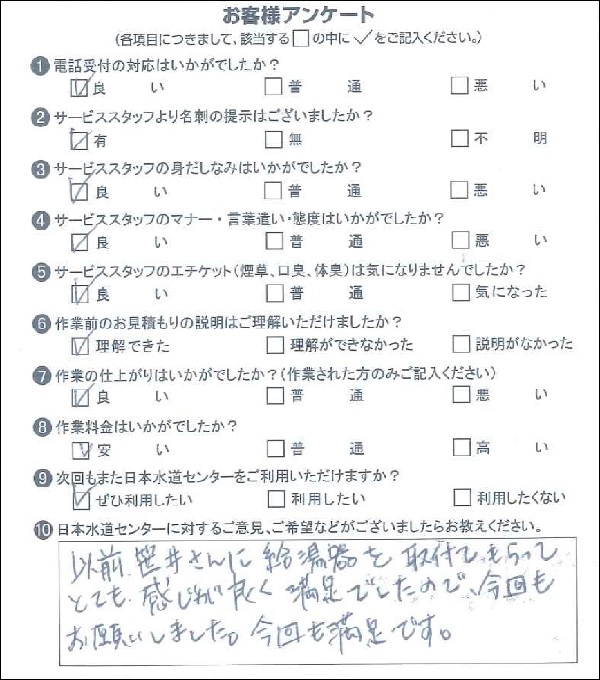 お客様アンケート
(各項目につきまして、該当する□の中に✓をご記入ください。)
❶ 電話受付の対応はいかがでしたか?
☑良い □普通 □悪い
❷ サービススタッフより名刺の提示はございましたか?
☑有 □無 □不明
❸ サービススタッフの身だしなみはいかがでしたか?
☑良い □普通 □悪い
❹ サービススタッフのマナー・言葉遣い・態度はいかがでしたか?
☑良い □普通 □悪い
❺ サービススタッフのエチケット(煙草、口臭、体臭)は気になりませんでしたか?
☑良い □普通 □気になった
❻ 作業前のお見積もりの説明はご理解いただけましたか?
☑理解できた □理解ができなかった □説明がなかった
❼ 作業の仕上がりはいかがでしたか?(作業された方のみご記入ください)
☑良い □普通 □悪い
❽ 作業料金はいかがでしたか?
☑安い □普通 □高い
❾ 次回もまた日本水道センターをご利用いただけますか?
☑ぜひ利用したい □利用したい □利用したくない
❿ 日本水道センターに対するご意見、ご希望などがございましたらお教えください。
以前、笹井さんに給湯器を取付てもらって
とても感じが良く満足でしたので、今回も
お願いしました。今回も満足です。